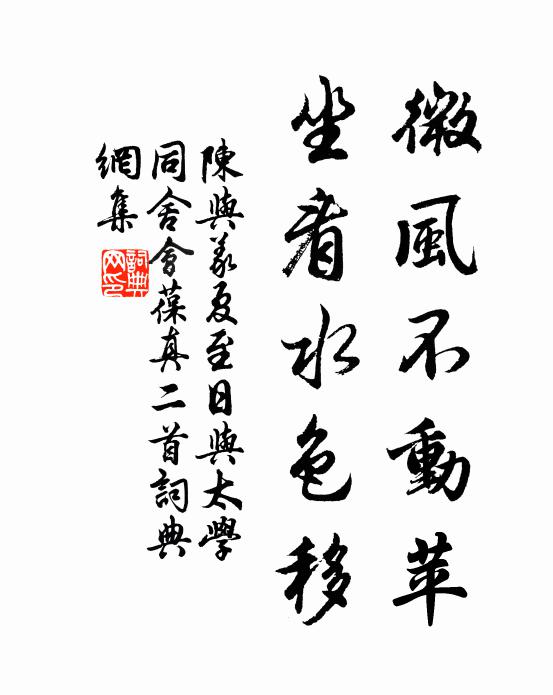 微風不動苹
坐看水色移
陳與義夏至日與太學
同舍會葆真二首詞典
網集
詞典網印